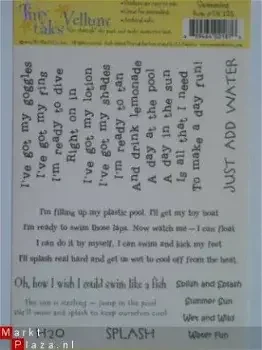 Tiny
tales Vellum
Swimming
I've got my goggles
I've got my fins
I'm ready to dive
Right on in
I've got my lotion
I've got my shades
I'm ready to tan
And drink lemonade
A day at the pool
A day in the sun
Is all that I need
To make a day run!
JUST ADD WATER
I'm filling up my plastic pool. I'll get my toy boat
I'm ready to swim those laps. Now watch me - I can float
I can do it by myself, I can swim and kick my feet
I'll splash real hard and get us wet to cool off from the heat.
Oh, how I wish I could swim like a fish
Splish and Splash
The sun is sizzling - jump in the pool
We'll swim and splash to keep ourselves cool
Summer Sun
Wet and Wild
H2O
SPLASH
Water Fun
Markt
Plaats.nl